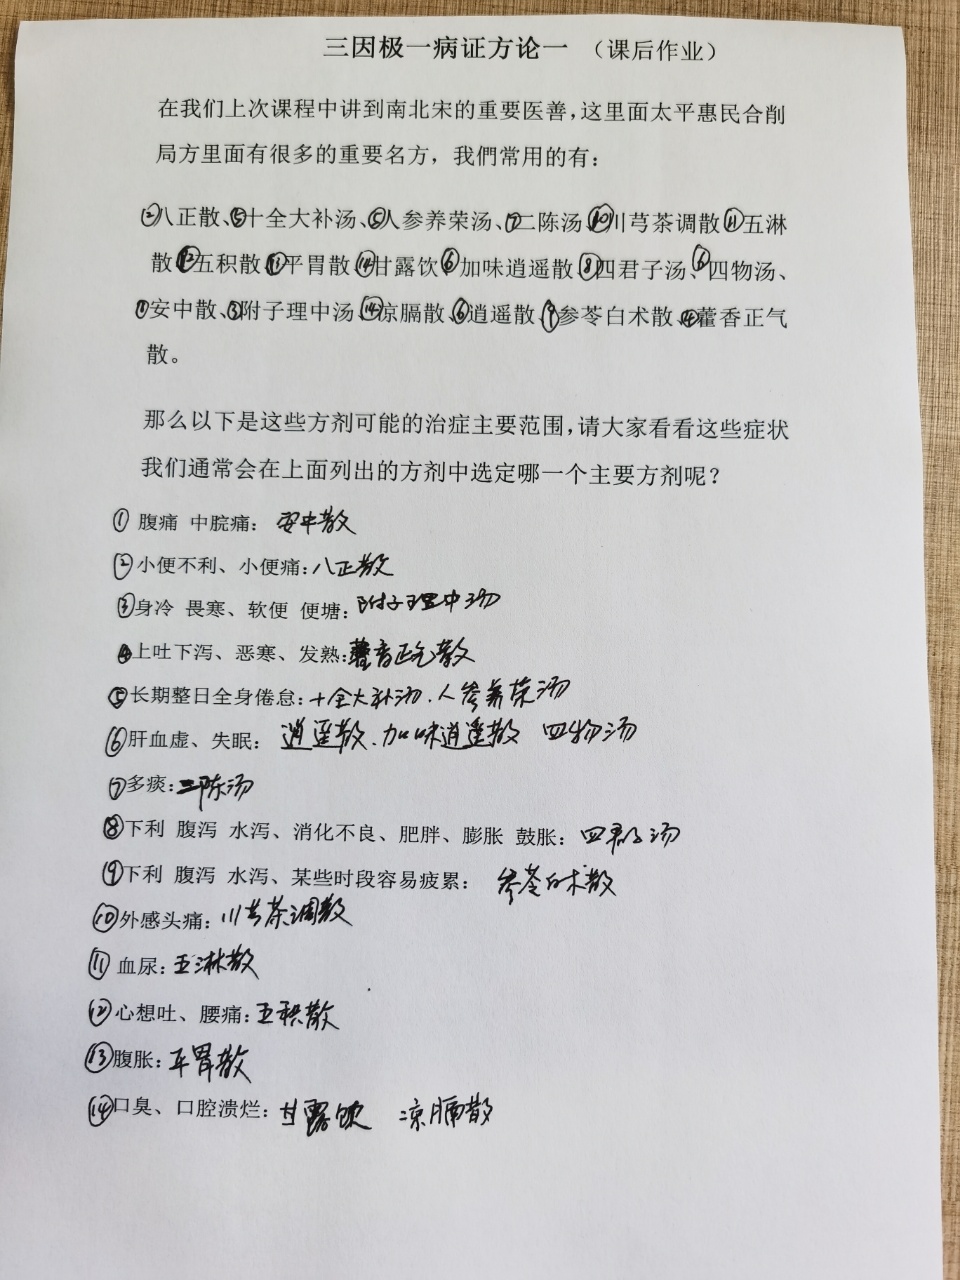 三因极一病证方论一 （课后作业）
在我们上次课程中讲到南北宋的重要医善，这里面太平惠民合削
局方里面有很多的重要名方，我們常用的有：
②八正散、⑤十全大补汤、⑤人参养荣汤、⑦二陈汤、⑩川芎茶调散、⑪五淋
散、⑫五积散、⑬平胃散、⑭甘露饮、⑥加味逍遥散、⑧四君子汤、⑥四物汤、
①安中散、③附子理中汤、⑭凉膈散、⑥逍遥散、⑨参苓白术散、④藿香正气
散。
那么以下是这些方剂可能的治症主要范围，请大家看看这些症状
我们通常会在上面列出的方剂中选定哪一个主要方剂呢？
① 腹痛 中脘痛：安中散
②小便不利、小便痛：八正散
③身冷 畏寒、软便 便塘：附子理中汤
④上吐下泻、恶寒、发熟：藿香正气散
⑤长期整日全身倦怠：十全大补汤、人参养荣汤
⑥肝血虚、失眠：逍遥散、加味逍遥散 四物汤
⑦多痰：二陈汤
⑧下利 腹泻 水泻、消化不良、肥胖、膨胀 鼓胀：四君子汤
⑨下利 腹泻 水泻、某些时段容易疲累：参苓白术散
⑩外感头痛：川芎茶调散
⑪血尿：五淋散
⑫心想吐、腰痛：五积散
⑬腹胀：平胃散
⑭口臭、口腔溃烂：甘露饮 凉膈散